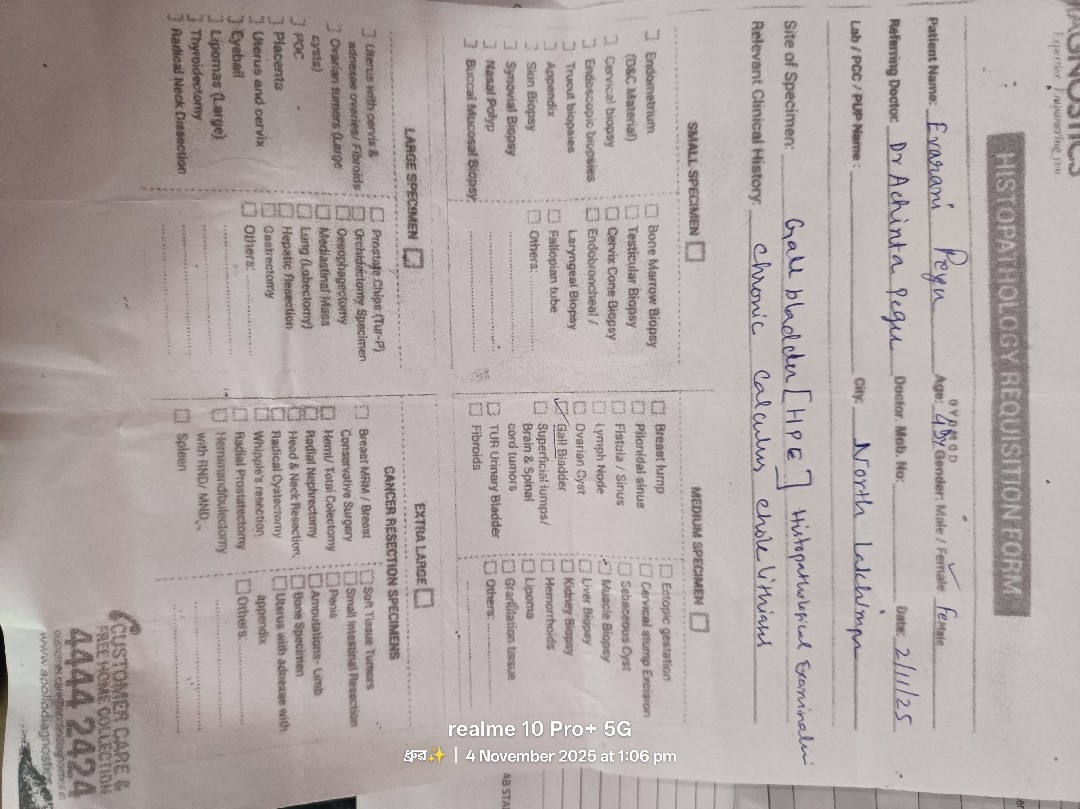 AGNOSTICS
Expertise. Empowering you.
HISTOPATHOLOGY REQUISITION FORM
Patient Name: Evarani Pegu Age: 48y Gender: Male / Female ✓ Female
D Y D M O D
Referring Doctor: Dr Achinta Pegu Doctor. Mob. No: Date: 2/11/25
Lab / PCC / PUP Name: City. North Lakhimpur
Site of Specimen: Gall bladder [HPE] Histopathological Examination
Relevant Clinical History: Chronic Calculus cholelithiasis
SMALL SPECIMEN
Endometrium
(D&C Material)
Cervical biopsy
Endoscopic biopsies
Trucut biopsies
Appendix
Skin Biopsy
Synovial Biopsy
Nasal Polyp
Buccal Mucosal Biopsy
Bone Marrow Biopsy
Testicular Biopsy
Cervix Cone Biopsy
Endobroncheal /
Laryngeal Biopsy
Fallopian tube
Others:
MEDIUM SPECIMEN
Breast lump
Pilonidal sinus
Fistula / Sinus
Lymph Node
Ovarian Cyst
Gall Bladder
Superficial lumps/
Brain & Spinal
cord tumors
TUR Urinary Bladder
Fibroids
Ectopic gestation
Cervical stump Excision
Sebaceous Cyst
Muscle Biopsy
Liver Biopsy
Kidney Biopsy
Hemorrhoids
Lipoma
Granulation tissue
Others:
LARGE SPECIMEN
Uterus with cervix &
adnexae ovaries/ Fibroids
Ovarian tumors (Large
cysts)
POC
Placenta
Uterus and cervix
Eyeball
Lipomas (Large)
Thyroidectomy
Radical Neck Dissection
Prostate Chips (Tur-P)
Orchidectomy Specimen
Oesophagectomy
Mediastinal Mass
Lung (Lobectomy)
Hepatic Resection
Gastrectomy
Others:
EXTRA LARGE
CANCER RESECTION SPECIMENS
Breast MRM / Breast
Conservative Surgery
Hemi/ Total Colectomy
Radial Nephrectomy
Head & Neck Resection,
Radical Cystectomy
Whipple's resection
Radial Prostatectomy
Hemimandibulectomy
with RND/ MND
Spleen
Soft Tissue Tumors
Small Intestinal Resection
Penis
Amputations- Limb
Bone Specimen
Uterus with adnexae with
appendix
Others.
CUSTOMER CARE &
FREE HOME COLLECTION
4444 2424
www.apollodiagnostics
AB STA
realme 10 Pro+ 5G
ধ্রুব✨ | 4 November 2025 at 1:06 pm